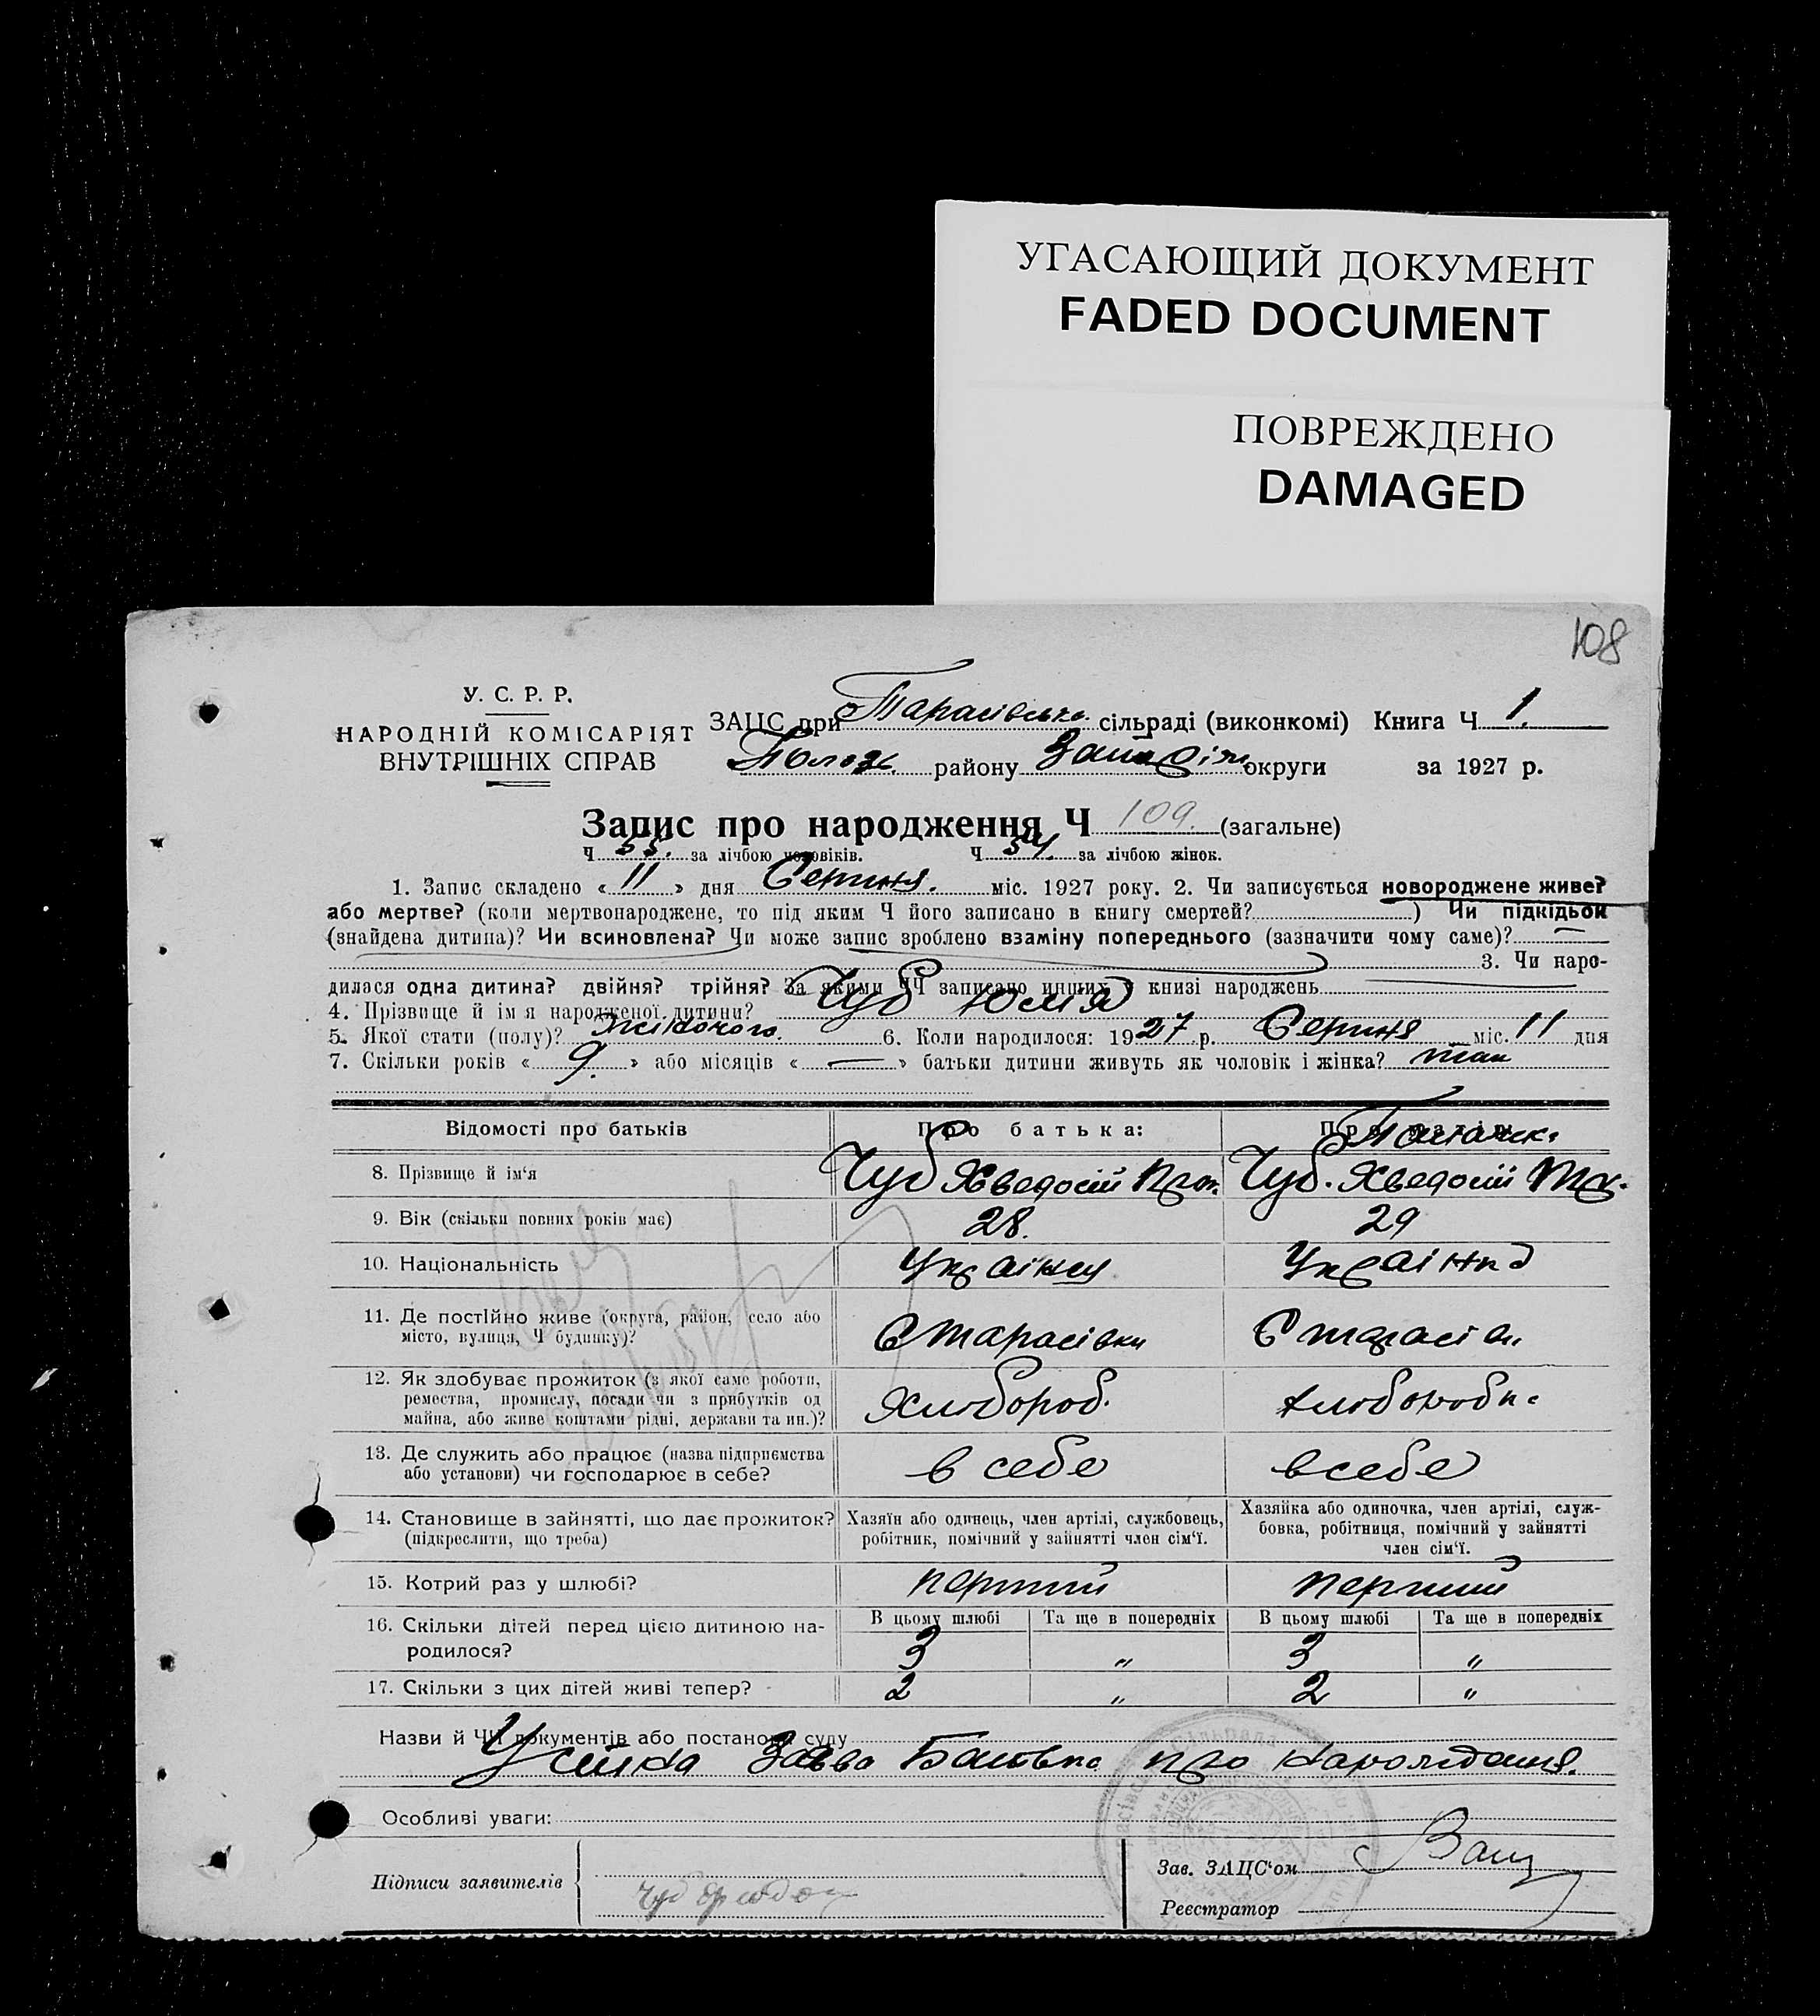 УГАСАЮЩИЙ ДОКУМЕНТ
FADED DOCUMENT
ПОВРЕЖДЕНО
DAMAGED
108
У. С. Р. Р.
НАРОДНІЙ КОМІСАРІЯТ
ВНУТРІШНІХ СПРАВ
ЗАЦС при Тарасівська сільраді (виконкомі) Книга Ч 1.
району округи за 1927 р.
Запис про народження Ч 109. (загальне)
Ч 55. за лічбою чоловіків. Ч 54. за лічбою жінок.
1. Запис складено « 11 » дня Серпня. міс. 1927 року. 2. Чи записується новороджене живе?
або мертве? (коли мертвонароджене, то під яким Ч його записано в книгу смертей? ) Чи підкідьок
(знайдена дитина)? Чи всиновлена? Чи може запис зроблено взаміну попереднього (зазначити чому саме)? —
3. Чи наро-
дилася одна дитина? двійня? трійня? За якими ЧЧ записано инших у книзі народжень
4. Прізвище й ім'я народженої дитини? Чуб Юлія
5. Якої стати (полу)? Жіночого. 6. Коли народилося: 1927 р. Серпня міс. 11 дня
7. Скільки років « 9. » або місяців « — » батьки дитини живуть як чоловік і жінка? так
Відомості про батьків
Про батька:
Про матір:
8. Прізвище й ім'я
Чуб Хведосій Чуб. Хведосій
9. Вік (скільки повних років має)
28. 29
10. Національність
Українец Українка
11. Де постійно живе (округа, район, село або
місто, вулиця, Ч будинку)?
С Тарасівки
12. Як здобуває прожиток (з якої саме роботи,
ремества, промислу, посади чи з прибутків од
майна, або живе коштами рідні, держави та ин.)?
Хлібороб.
13. Де служить або працює (назва підприємства
або установи) чи господарює в себе?
в себе в себе
14. Становище в зайнятті, що дає прожиток?
(підкреслити, що треба)
Хазяїн або одинець, член артілі, службовець,
робітник, помічний у зайнятті член сім'ї.
Хазяйка або одиночка, член артілі, служ-
бовка, робітниця, помічний у зайнятті
член сім'ї.
15. Котрий раз у шлюбі?
перший перший
16. Скільки дітей перед цією дитиною на-
родилося?
В цьому шлюбі Та ще в попередніх В цьому шлюбі Та ще в попередніх
3 " 3 "
17. Скільки з цих дітей живі тепер?
2 " 2 "
Назви й ЧЧ документів або постанови суду
Устна Заява Батька про народження.
Особливі уваги:
Підписи заявителів
Чуб
Зав. ЗАЦС'ом
Реєстратор